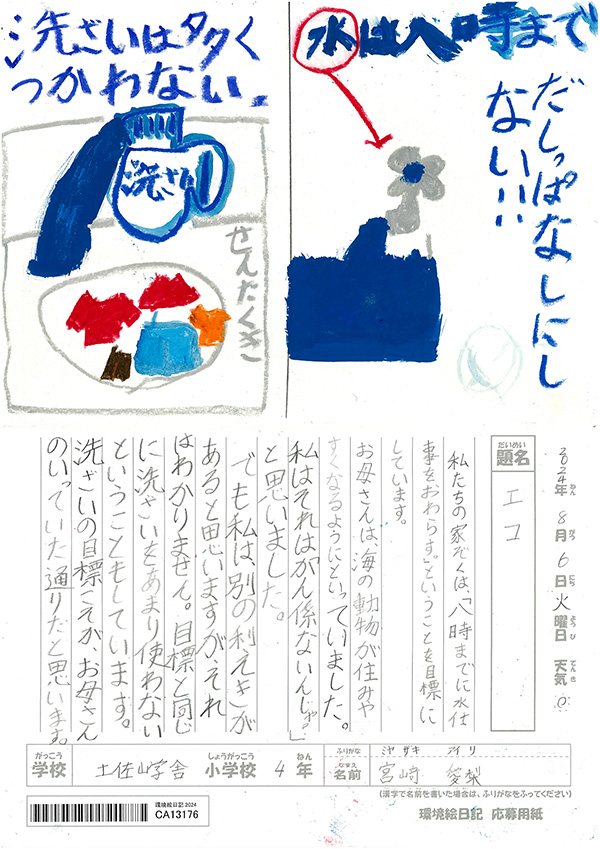 洗ざいは多く
つかわない。
洗ざい
せんたくき
水は八時まで
だしっぱなしにし
ない!!
2024年 8月 6日 火曜日 天気 ○
ねん がつ にち ようび てんき
だいめい
題名
エコ
私たちの家ぞくは、「八時までに水仕
事をおわらす。」ということを目標に
しています。
お母さんは、海の動物が住みや
すくなるようにといっていました。
私はそれはかん係ないんじゃ」
と思いました。
でも私は、別の利えきが
あると思いますが、それ
はわかりません。目標と同じ
に洗ざいをあまり使わない
ということもしています。
洗ざいの目標こそが、お母さん
のいっていた通りだと思います。
がっこう しょうがっこう ねん ふりがな ミヤザキ アイリ
学校 土佐山学舎 小学校 4年 なまえ 名前 宮崎 愛梨
(漢字で名前を書いた場合は、ふりがなをふってください)
環境絵日記2024
CA13176
環境絵日記 応募用紙